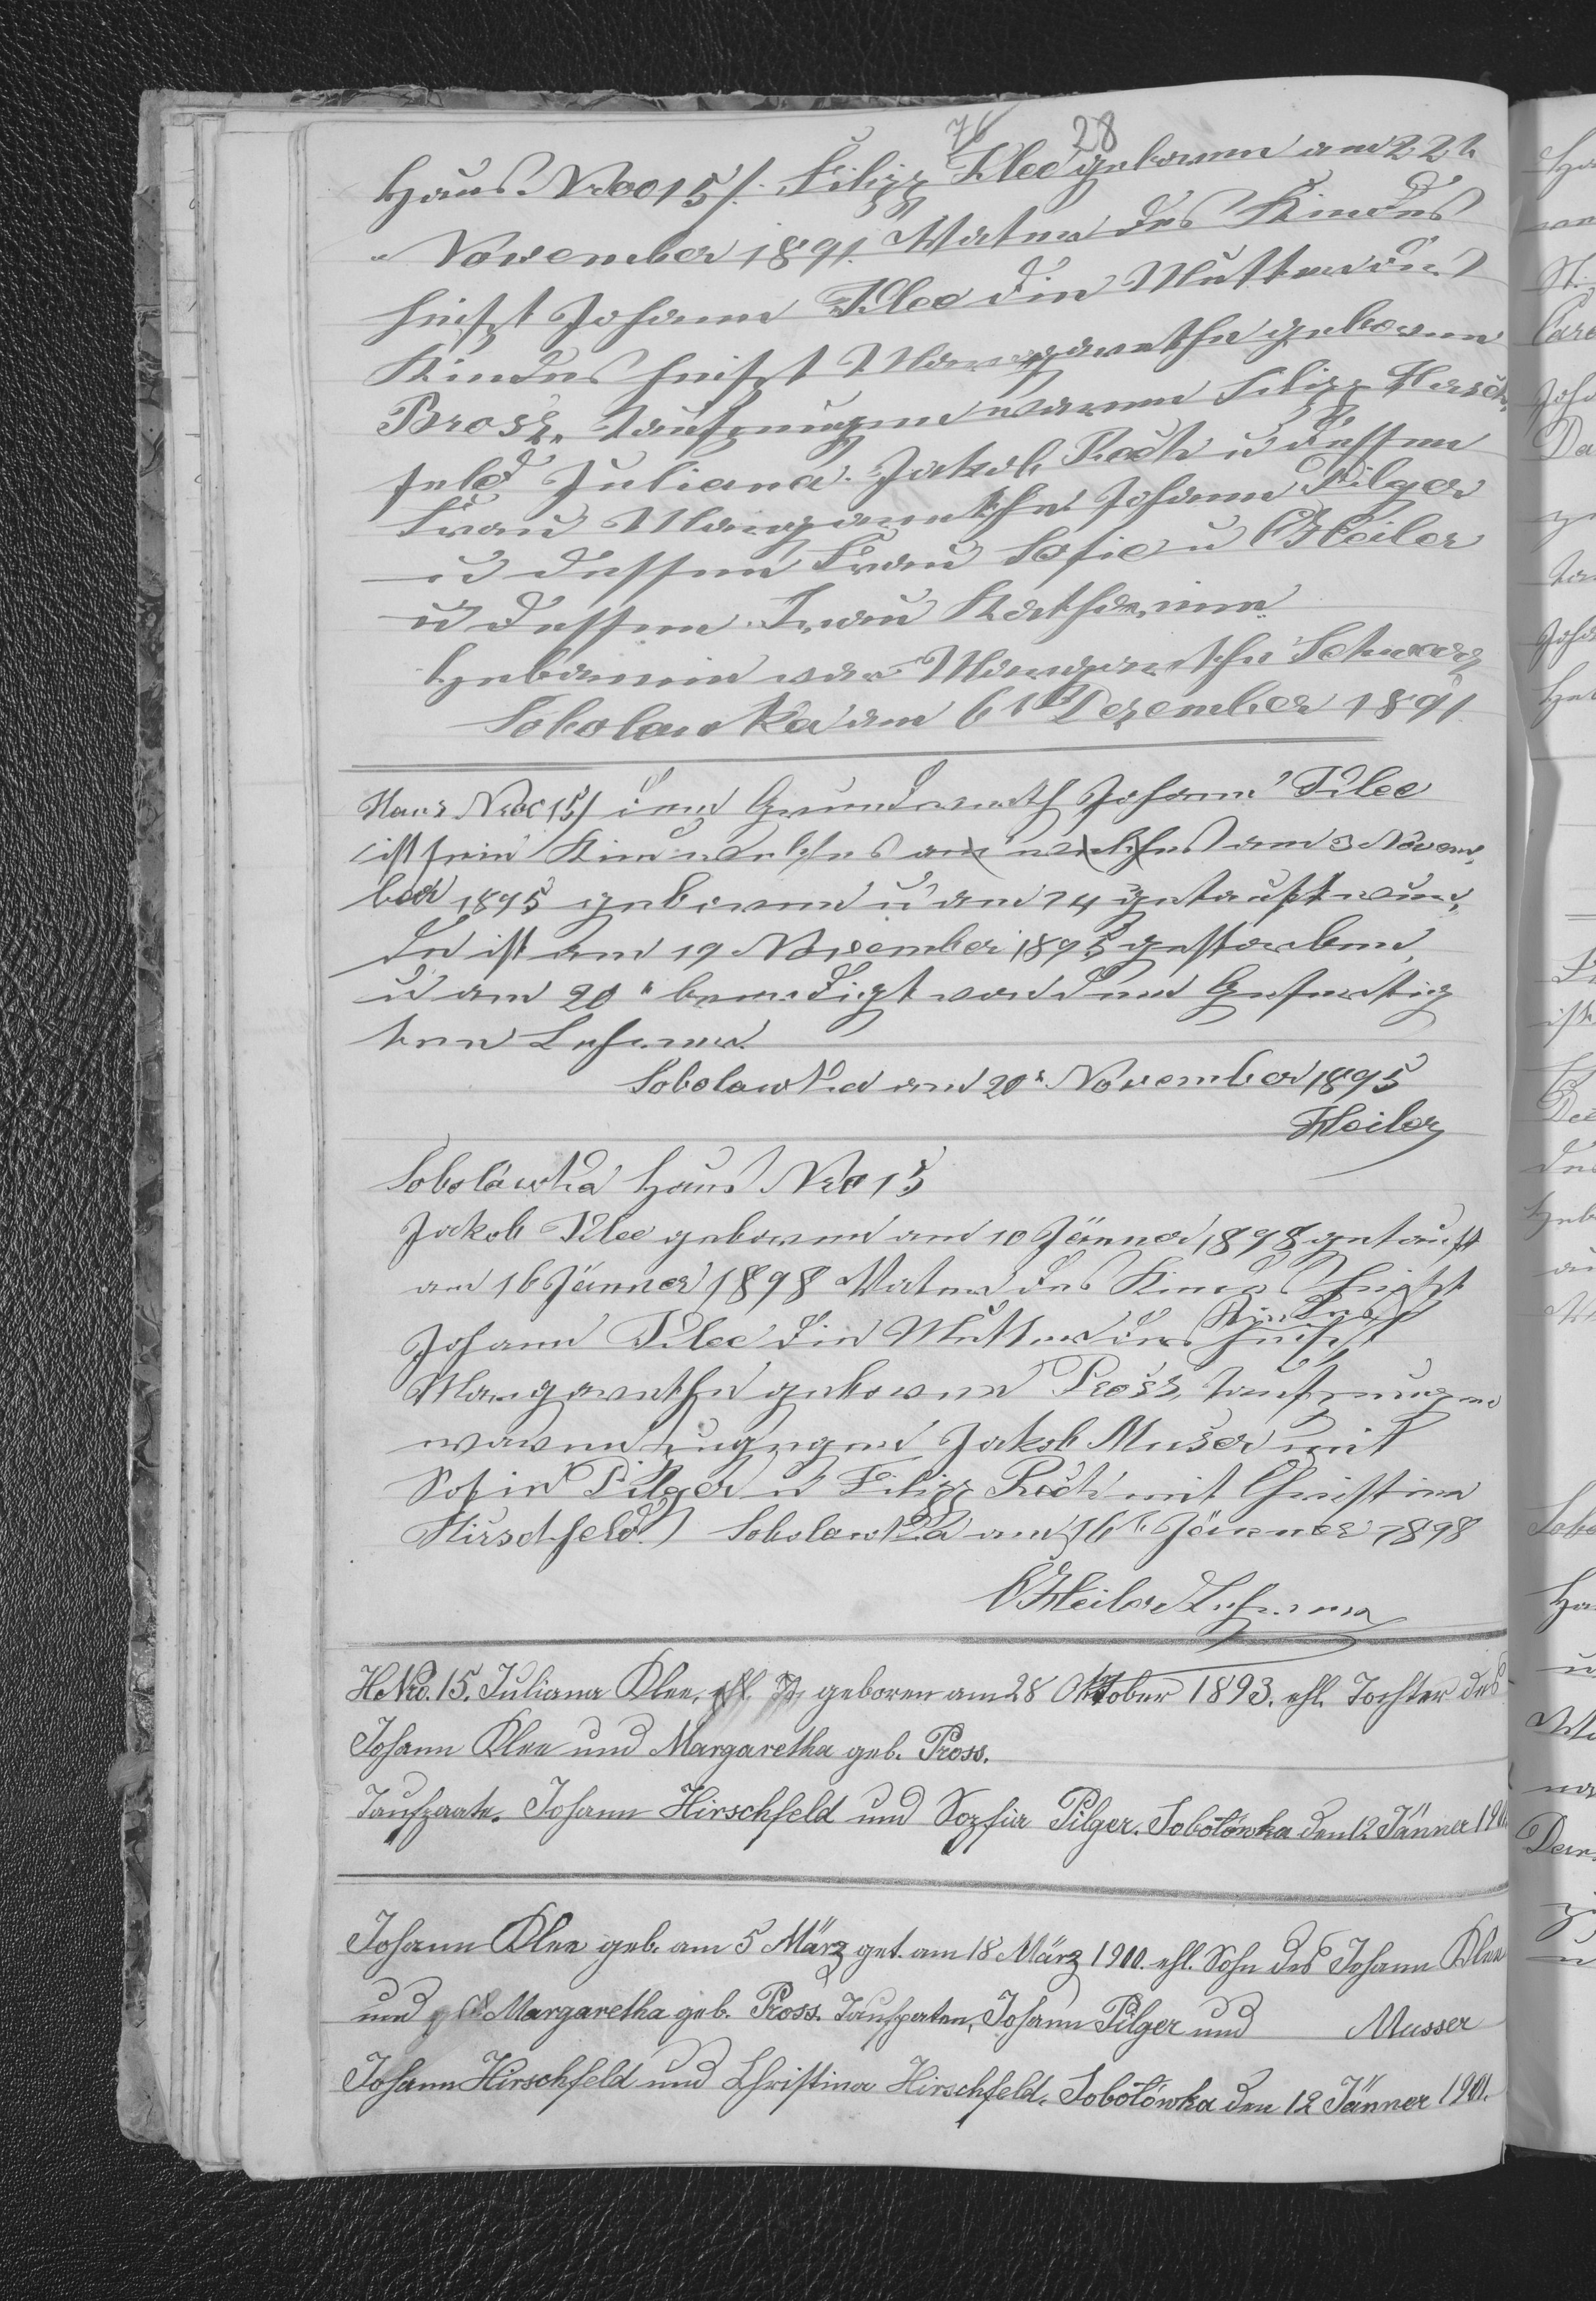 76 28
Haus Nroo 15/. Filipp Klee geboren am 22t
November 1891. Vater des Kindes
heißt Johann Klee die Mutter des
Kindes heißt Margarethe geborene
Prosz. Taufzeugen waren Filipp Hirsch,
feld Juliana. Jakob Roth u dessen
Frau Margarethe. Johann Pilger
u dessen Frau Sofie u Heiler
u dessen Frau Katharina
Hebamme war Margarethe Schwarz
Sobolowka am 6t Dezember 1891
Haus Nroo 15/ dem Grundwirth Johann Klee
ist sein Kind welches am welches am 3 Novem,
ber 1895 geboren u am 14 getauft wur,
de ist am 19 November 1895 gestorben,
u am 20t beerdigt von dem Gefertig
ten Lehrer.
Sobolowka am 20t November 1895
Heiler
Sobolówka Haus Nro 15
Jakob Klee geboren am 10 Jänner 1898 getauft
am 16 Jänner 1898 Vater des Kindes heißt
Johann Klee die Mutter des Kindes heißt
Margarethe geborene Prosz, Taufzeugen
waren zugegen Jakob Muser mit
Sofie Pilger u Filipp Roth mit Christina
Hirschfeld. Sobolowka am 16t Jänner 1898
Heiler Lehrer
H.Nro. 15. Juliana Klee, geboren am 28 Oktober 1893. ehl. Tochter des
Johann Klee und Margaretha geb. Pross.
Taufpaate. Johann Hirschfeld und Sozfia Pilger. Sobolówka den 12 Jänner 190
Johann Klee geb. am 5 März get. am 18 März 1900. ehl. Sohn des Johann Klee
und Margaretha geb. Pross. Taufpaten, Johann Pilger und Musser
Johann Hirschfeld und Christina Hirschfeld. Sobolówka den 12 Jänner 1901.